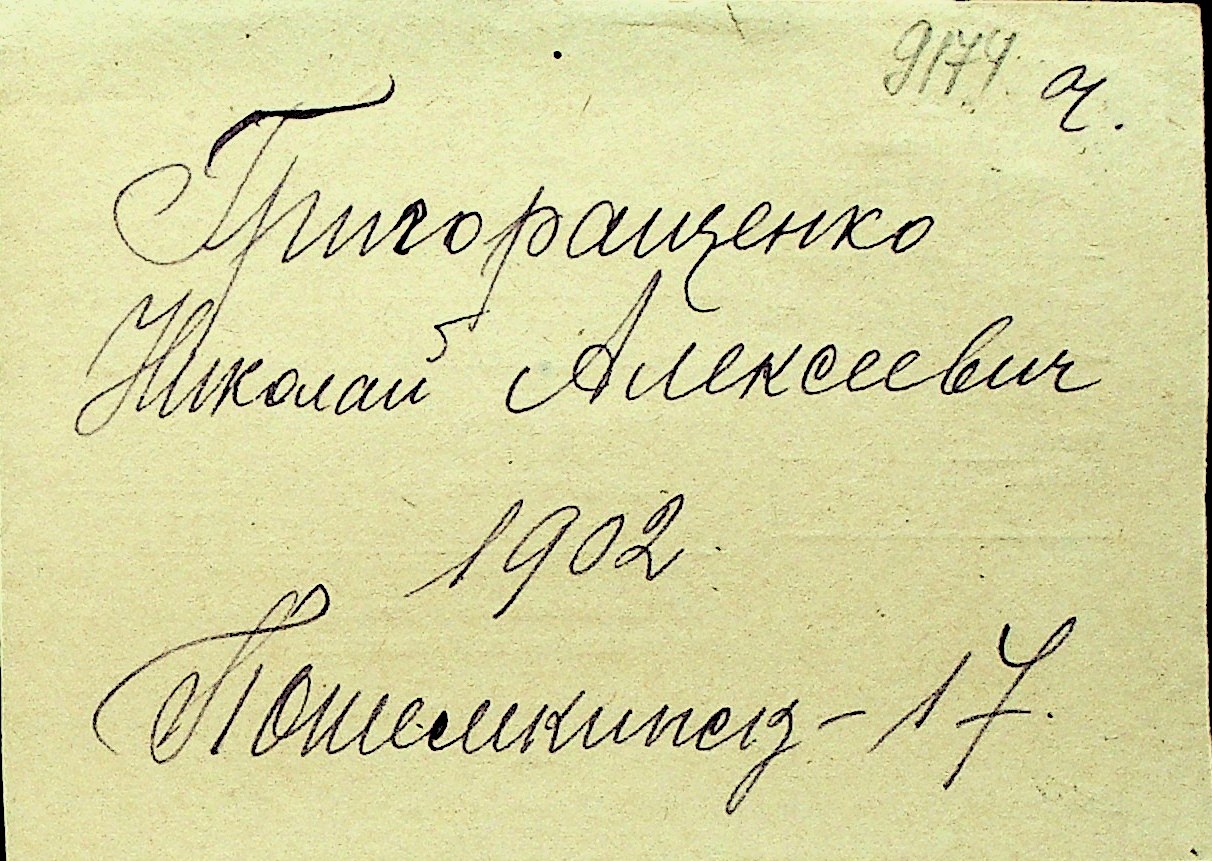 9174 ч.
Григоращенко
Николай Алексеевич
1902
Потемкинск – 17.